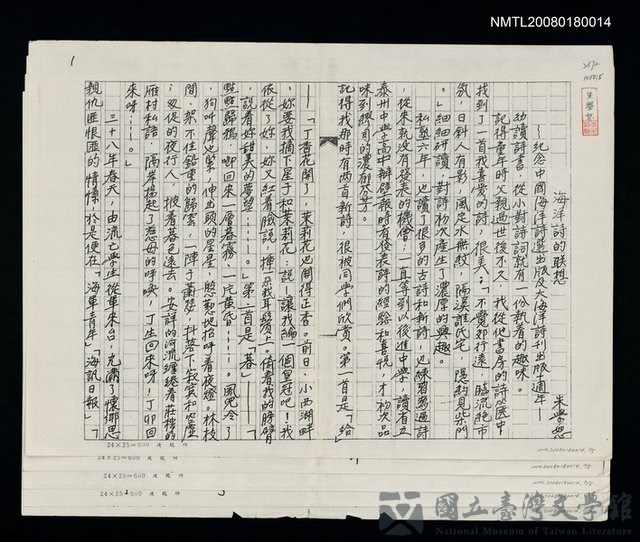 NMTL20080180014
海洋詩的联想
——紀念中國海洋詩選出版及大海洋詩刊出版十週年——
朱學恕
幼讀詩書，從小對詩詞就有一份執着的趣味。
記得童年時父親過世後不久，我從他書房的詩箧中
找到了一首我喜愛的詩，很美：「不覺郊行遠，臨流絶市
氛，日斜人有影，風定水無紋，隔溪誰氏宅，隱約見柴門
。」細細研讀，對詩初次産生了濃厚的興趣。
私塾六年，也讀了很多的古詩和新詩，也練習寫過詩
，從來就没有發表的機會，一直等到以後進中學，讀省立
泰州中學高中辦壁報時有發表詩的經驗和喜悦，才初次品
味到繆
記得我那時有兩首新詩，很被同學們欣賞。第一首是「给」
——「丁香花開了，茉莉花也開得正香。前日，小西湖畔
，妳要我摘下星子和茉莉花：說——讓我編一個皇冠吧！我
依從了妳，妳又紅着臉說，揮一朵我耳鬢上，倚着我的膀臂
，說着妳甜美的夢……」。第二首是「暮」——
點點歸鴉，啣回來一層暮霧，一片黄昏……。風死冷了
，狗叫聲也緊，伸出頭的星星，慇懃地招呼着夜燈。林枝
間，架不住鉛重的歸雲，一陣子蕭瑟，抖落下寂寞和空虛
；匆促的夜行人，披着暮色遠去。安詳的河流纏綣着莊穆的
雁村私語，隔岸揚起了惹妮的呼喚，丁生回來呀！丁卯回
來呀……。」
三十八年春天，由流亡學生從軍來台，充满了懷鄉思
親仇匪恨匪的情懷，於是便在「海軍青年」「海訊日報」「
24×25=600
國立臺灣文學館
National Museum of Taiwan Literature